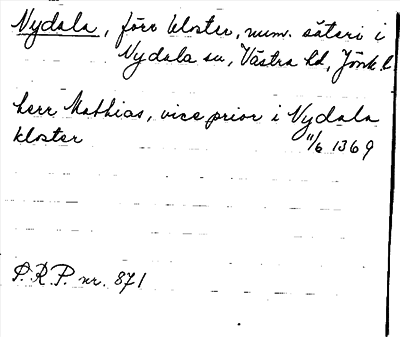 Nydala, förr kloster, num. säteri i
Nydala sn, Västra hd, Jönk. l
herr Mathias, vice prior i Nydala
kloster 11/6 1369
S.R.P. nr. 871